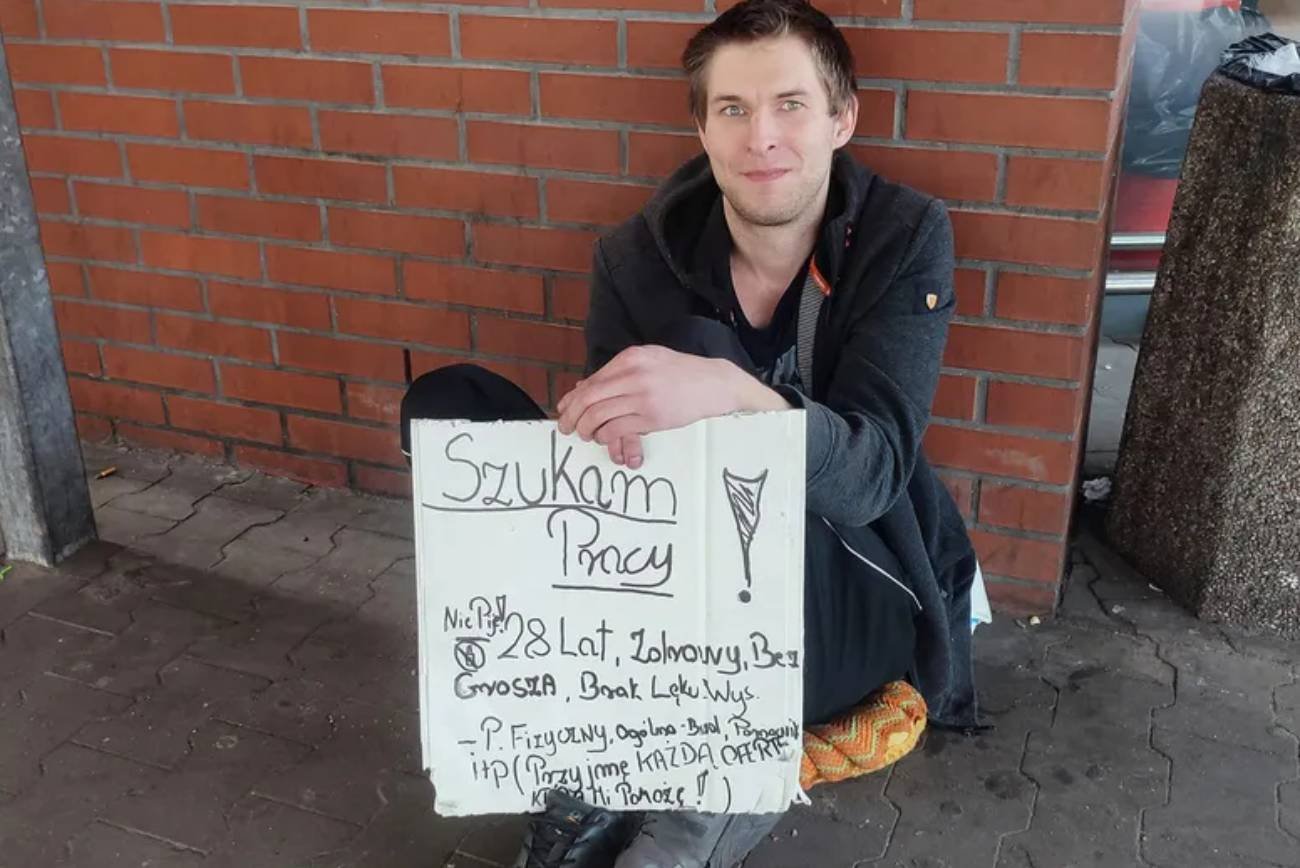 Szukam !
Pracy
Nie Piję!
28 Lat, Zdrowy, Bez
Grosza, Brak Lęku. Wys.
- P. Fizyczny, Ogólno-Bud, Pomocnik
itp (Przyjmę KAŻDĄ OFERTĘ
Która Mi Pomoże! )